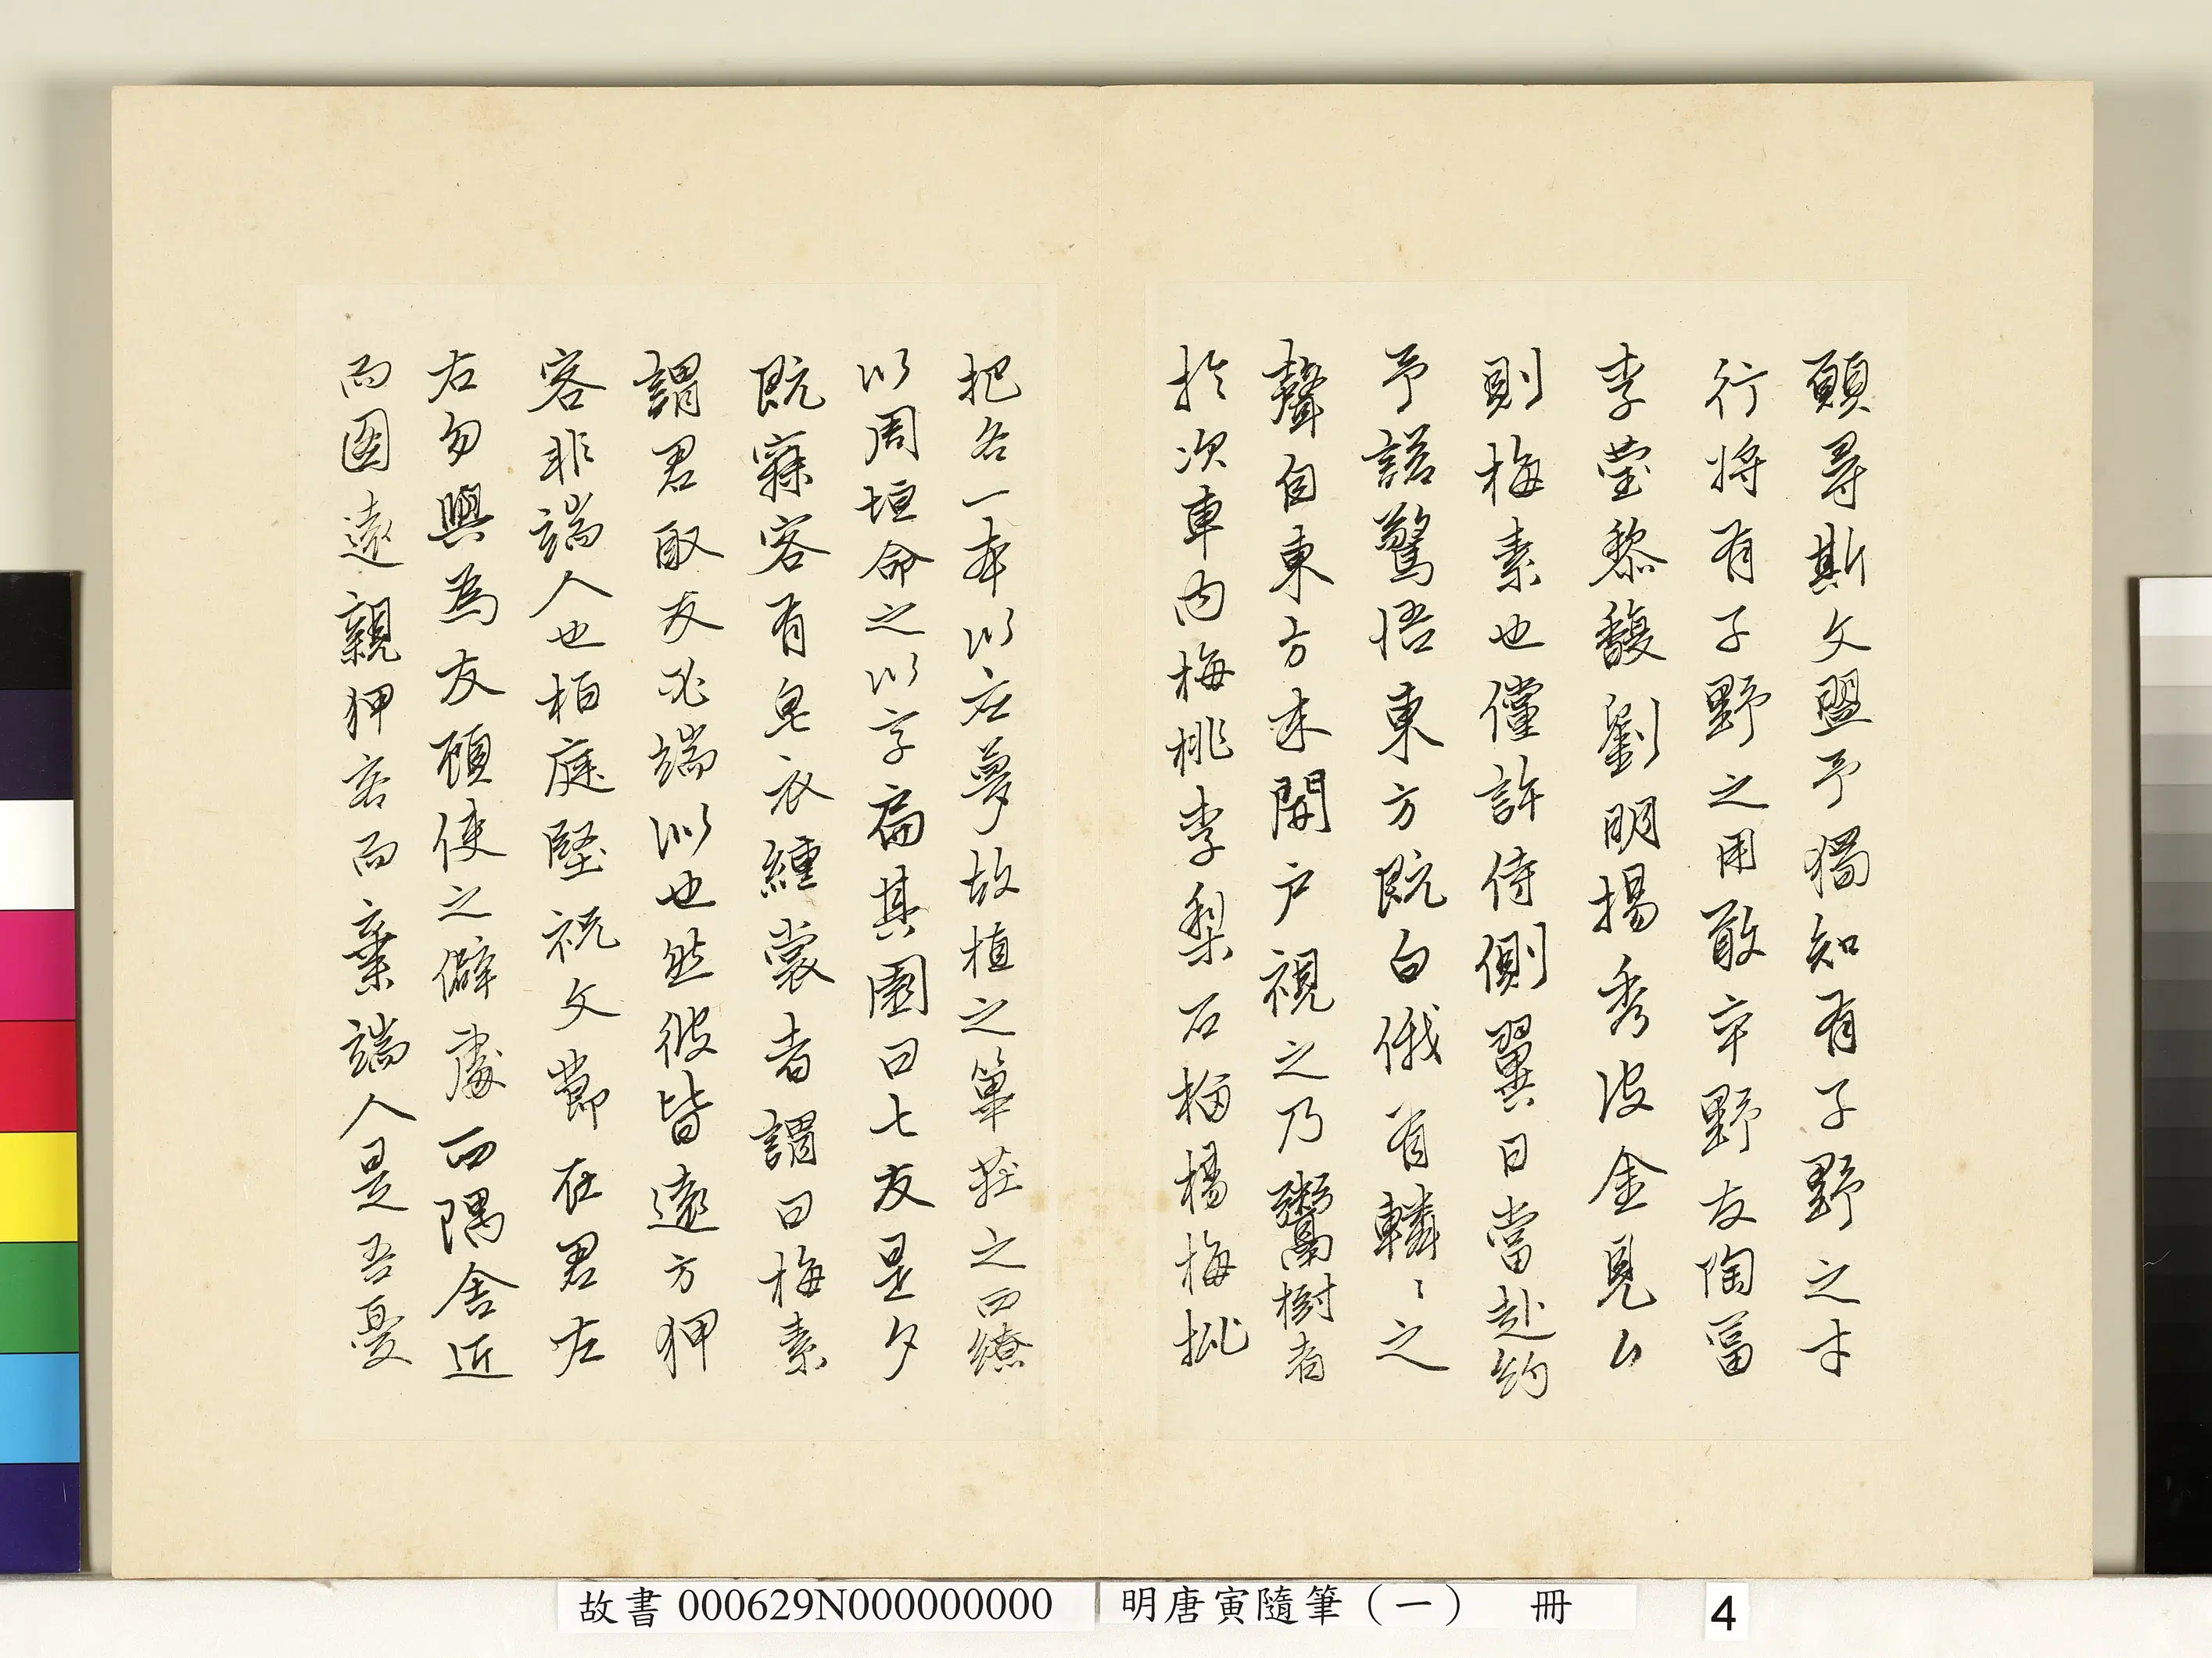 願尋斯文盟予獨知有子野之才
行將有子野之用敢辛野友陶富
李瑩黎馥劉明揚秀波金見公
則梅素也儻許侍側翼日當赴約
予諾驚悟東方既白俄有轔〻之
聲自東方來開戶視之乃鬻樹者
於次車內梅桃李梨石榴楊梅枇
把各一本以應夢故植之篳莊之四繚
以周垣命之以字扁其園曰七友是夕
既寐客有皂衣纁裳者謂曰梅素
謂君取友必端似也然彼皆遠方狎
客非端人也柏庭堅祝文節在君左
右勿與為友頋使之僻處西隅舍近
而圖遠親狎客而棄端人是吾憂
故書 000629N000000000
明唐寅隨筆（一） 冊
4